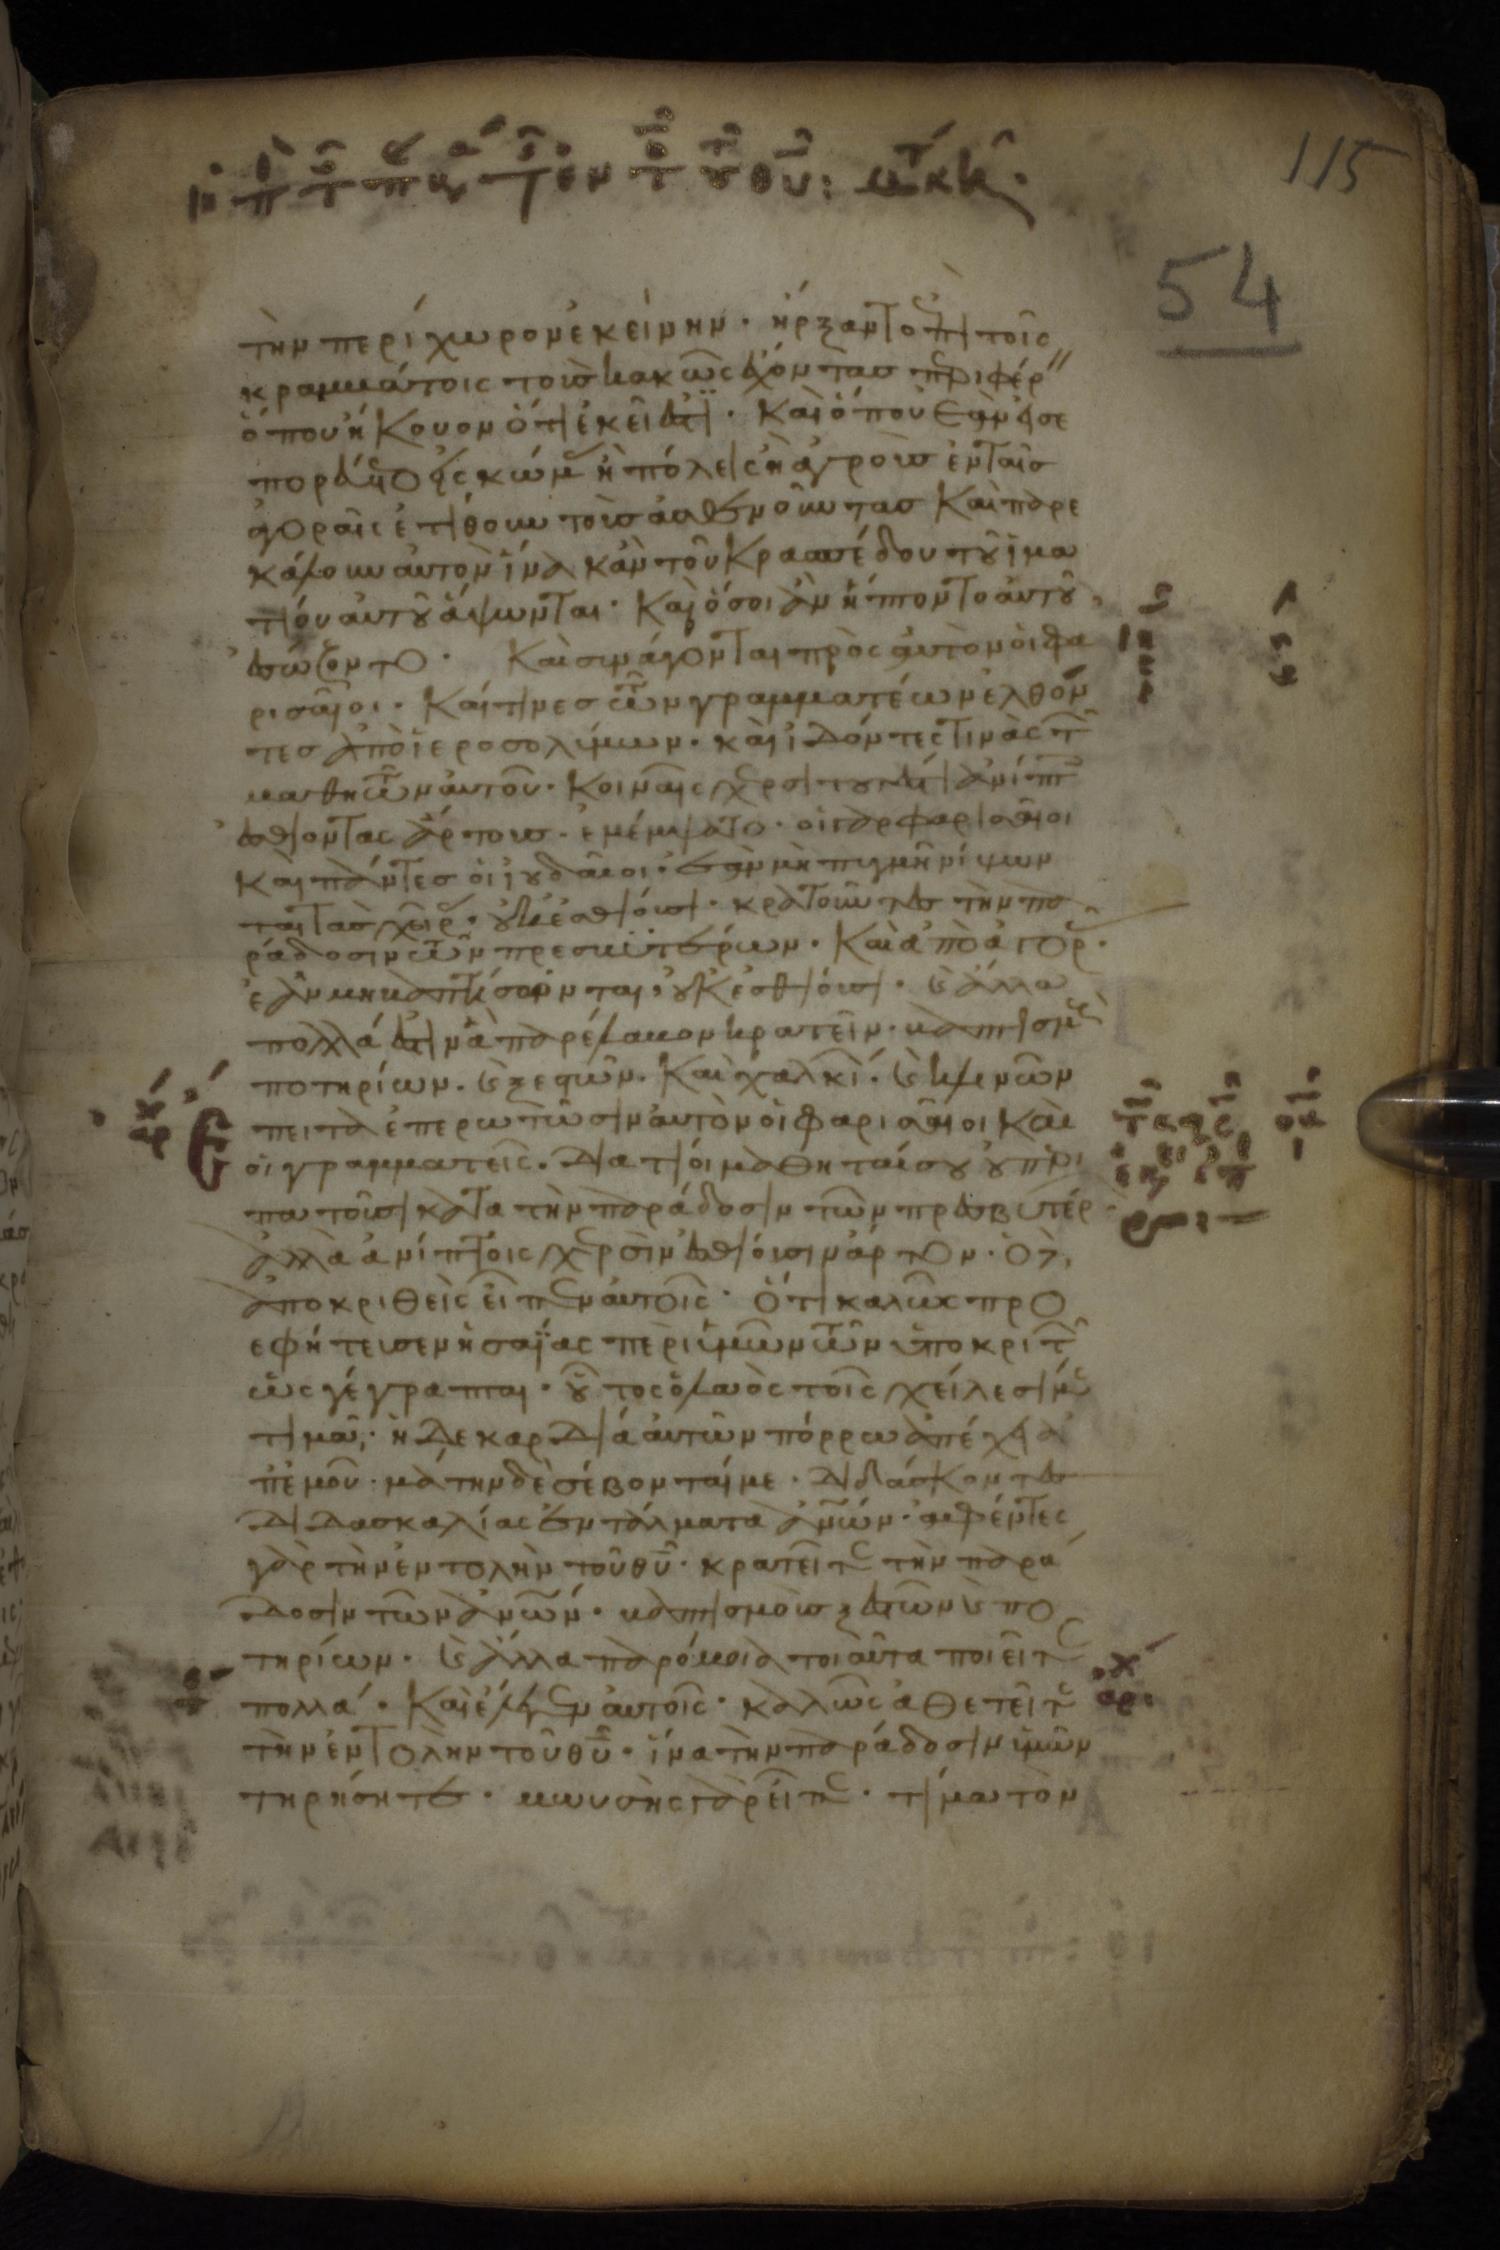 115
54
τὴν περίχωρον ἐκείνην · ἤρξαντο ἐπὶ τοῖς
κραμμάτοις τοὺς κακῶς ἔχοντας περιφέρ
ὅπου ἤκουον ὅτι ἐκεῖ ἐστὶ · Καὶ ὅπου ἐὰν εἰσε
πορεύετο εἰς κώμ ἢ πόλεις ἢ ἀγροὺς ἐν ταῖς
ἀγοραῖς ἐτίθουν τοὺς ἀσθενοῦντας Καὶ παρε
κάλουν αὐτὸν ἵνα κἂν τοῦ κρασπέδου τοῦ ἱμα
τίου αὐτοῦ ἅψωνται · Καὶ ὅσοι ἂν ἥπτοντο αὐτοῦ
ἐσώζοντο · Καὶ συνάγονται πρὸς αὐτὸν οἱ φα
ρισαῖοι · Καί τινες τῶν γραμματέων ἐλθόν
τες ἀπὸ ἱεροσολύμων · καὶ ἰδόντες τινὰς τ
μαθητῶν αὐτοῦ · Κοιναῖς χερσὶ τουτέστι ἀνίπτ
ἐσθίοντας ἄρτους · ἐμέμψατο · οἱ γὰρ φαρισαῖοι
Καὶ πάντες οἱ ἰουδαῖοι · ἐὰν μὴ πυγμῇ νίψων
ται τὰς χεῖρ · οὐκ ἐσθίουσι · κρατοῦντες τὴν πα
ράδοσιν τῶν πρεσβυτέρων · Καὶ ἀπὸ ἀγορ ·
ἐὰν μὴ βαπτίσωνται, οὐκ ἐσθίουσι · καὶ ἄλλα
πολλά ἐστιν ἃ παρέλαβον κρατεῖν · βαπτισμ
ποτηρίων · καὶ ξεστῶν · Καὶ χαλκί · καὶ κλινῶν
πειτα ἐπερωτῶσιν αὐτὸν οἱ φαρισαῖοι Καὶ
οἱ γραμματεῖς · Διατί οἱ μαθηταί σου οὐ περι
πατοῦσι κατὰ τὴν παράδοσιν τῶν πρεσβυτέρ ·
ἀλλὰ ἀνίπτοις χερσὶν ἐσθίουσιν ἄρτον · Ὁ δὲ
ἀποκριθεὶς εἶπεν αὐτοῖς · Ὅτι καλῶς προ
εφήτευσεν ἡσαΐας περὶ ὑμῶν τῶν ὑποκριτ
ὡς γέγραπται · οὗτος ὁ λαὸς τοῖς χείλεσίν με
τιμᾷ, · ἡ δὲ καρδία αὐτῶν πόρρω ἀπέχει ἀ
π ἐμοῦ · μάτην δὲ σέβονταί με · Διδάσκοντες
Διδασκαλίας ἐντάλματα ἀνων · ἀφέντες
γὰρ τὴν ἐντολὴν τοῦ θυ · κρατεῖτε τὴν παρά
δοσιν τῶν ἀνων · βαπτισμοὺς ξεστῶν καὶ πο
τηρίων · καὶ ἄλλα παρόμοια τοιαῦτα ποιεῖτε
πολλά · Καὶ ἔλεγεν αὐτοῖς · καλῶς ἀθετεῖτε
τὴν ἐντολὴν τοῦ θυ · ἵνα τὴν παράδοσιν ὑμῶν
τηρήσητε · μωυσῆς γὰρ εἶπε · τίμα τὸν